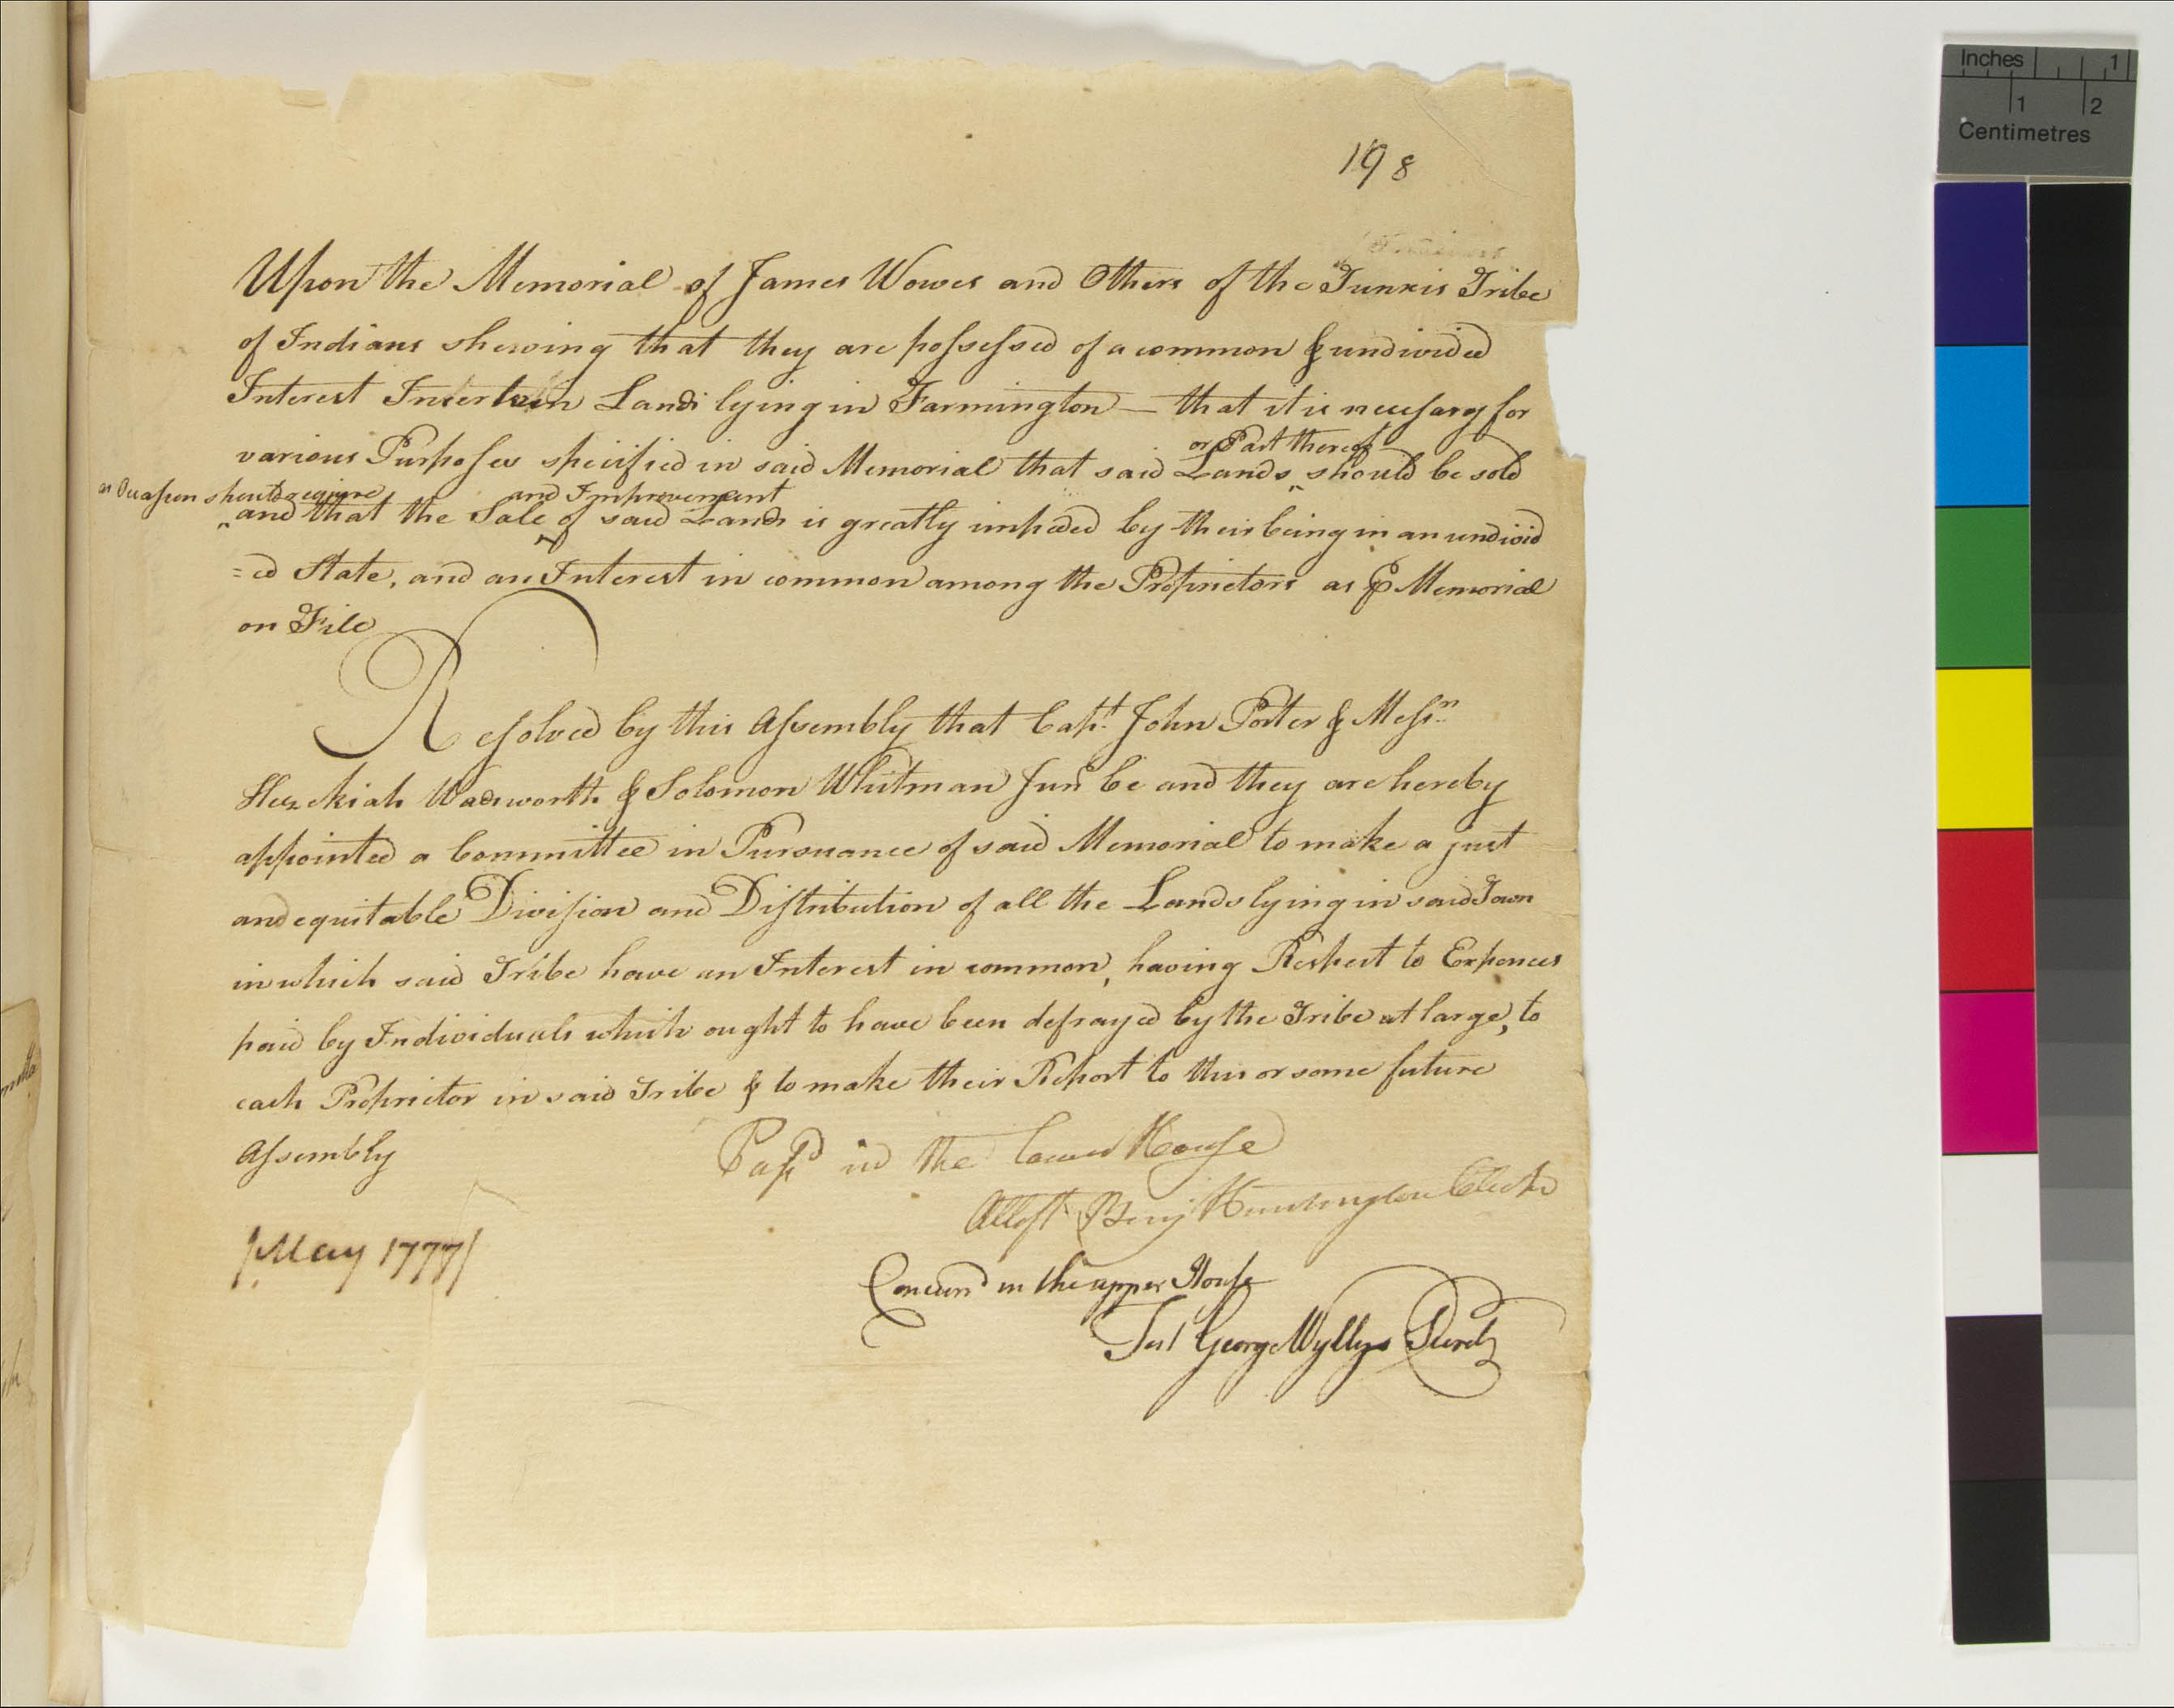 Inches 1
1 2
Centimetres
198
Upon the Memorial of James Wowes and Others of the Tunxis Tribe
of Indians shewing that they are possessed of a common & undivided
Interest In certain Lands lying in Farmington — that it is necessary for
or Part thereof
various Purposes specified in said Memorial that said Lands ‸ should be sold
as Occasion should require and Improvement
‸ and that the Sale ‸ of said Lands is greatly impeded by their being in an undivid
=ed State, and an Interest in common among the Proprietors as ⅌ Memorial
on File
Resolved by this Assembly that Capt. John Porter & Messrs.
Hezekiah Wadsworth & Solomon Whitman Junr be and they are hereby
appointed a Committee in Pursuance of said Memorial to make a just
and equitable Division and Distribution of all the Lands lying in said Town
in which said Tribe have an Interest in common, having Respect to Expences
paid by Individuals which ought to have been defrayed by the Tribe at large, to
each Proprietor in said Tribe & to make their Report to this or some future
Assembly
Passd in the Lower House
Attest Benj Huntington Clerk
[May 1777]
Concurrd in the upper House
Test George Wyllys Secrety